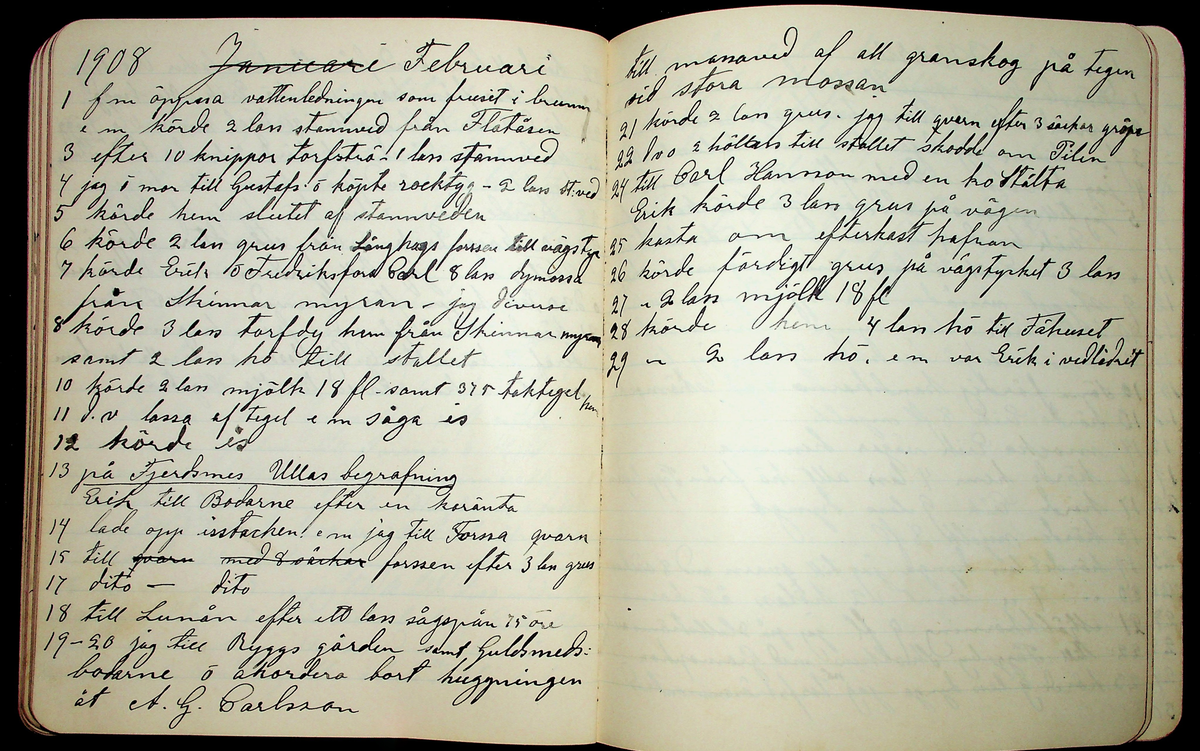 1908 Januari Februari
1 f m öppna vattenledningen som fruset i brunn
e m körde 2 lass stamved från Flatåsen
3 efter 10 knippor torfströ - 1 lass stamved
4 jag ö mor till Gustafs ö köpte rocktyg - 2 lass st.ved
5 körde hem slutet af stamveden
6 körde 2 lan grus från Långhags forssen till vägsty
7 körde Erik ö Fredriksfors Carl 8 lass dymossa
från Skinnar myran - jag diverse
8 körde 3 lass torfdy hem från Skinnarmyran
samt 2 lass hö till stallet
10 körde 2 lan mjölk 18 fl. samt 375 taktegel hem
11 d.v lassa af tegel e m såga is
12 körde is
13 på Fjerdsmes Ullas begrafning
Erik till Bodarne efter en
14 lade opp isstacken e m jag till Forssa qvarn
15 till qvarn med 8 säckar forssen efter 3 lan grus
17 dito - dito
18 till Lunån efter ett lass sågspån 75 öre
19-20 jag till Ryggs gården samt Guldsmeds-
bodarne ö akordera bort huggningen
åt A. G. Carlsson
till massaved af all granskog på tegen
vid stora mossan
21 körde 2 lass grus. jag till qvarn efter 3 säckar gröpe
22 2 till stallet skodde om Pilen
24 till Carl Hansson med en ko Stålta
Erik körde 3 lan grus på vägen
25 kasta om efterkast hafran
26 körde färdigt grus på vägstycket 3 lass
27 " 2 lass mjölk 18 fl
28 körde hem 4 lan hö till Fähuset
29 " 2 lass hö. e m var Erik i vedlidret